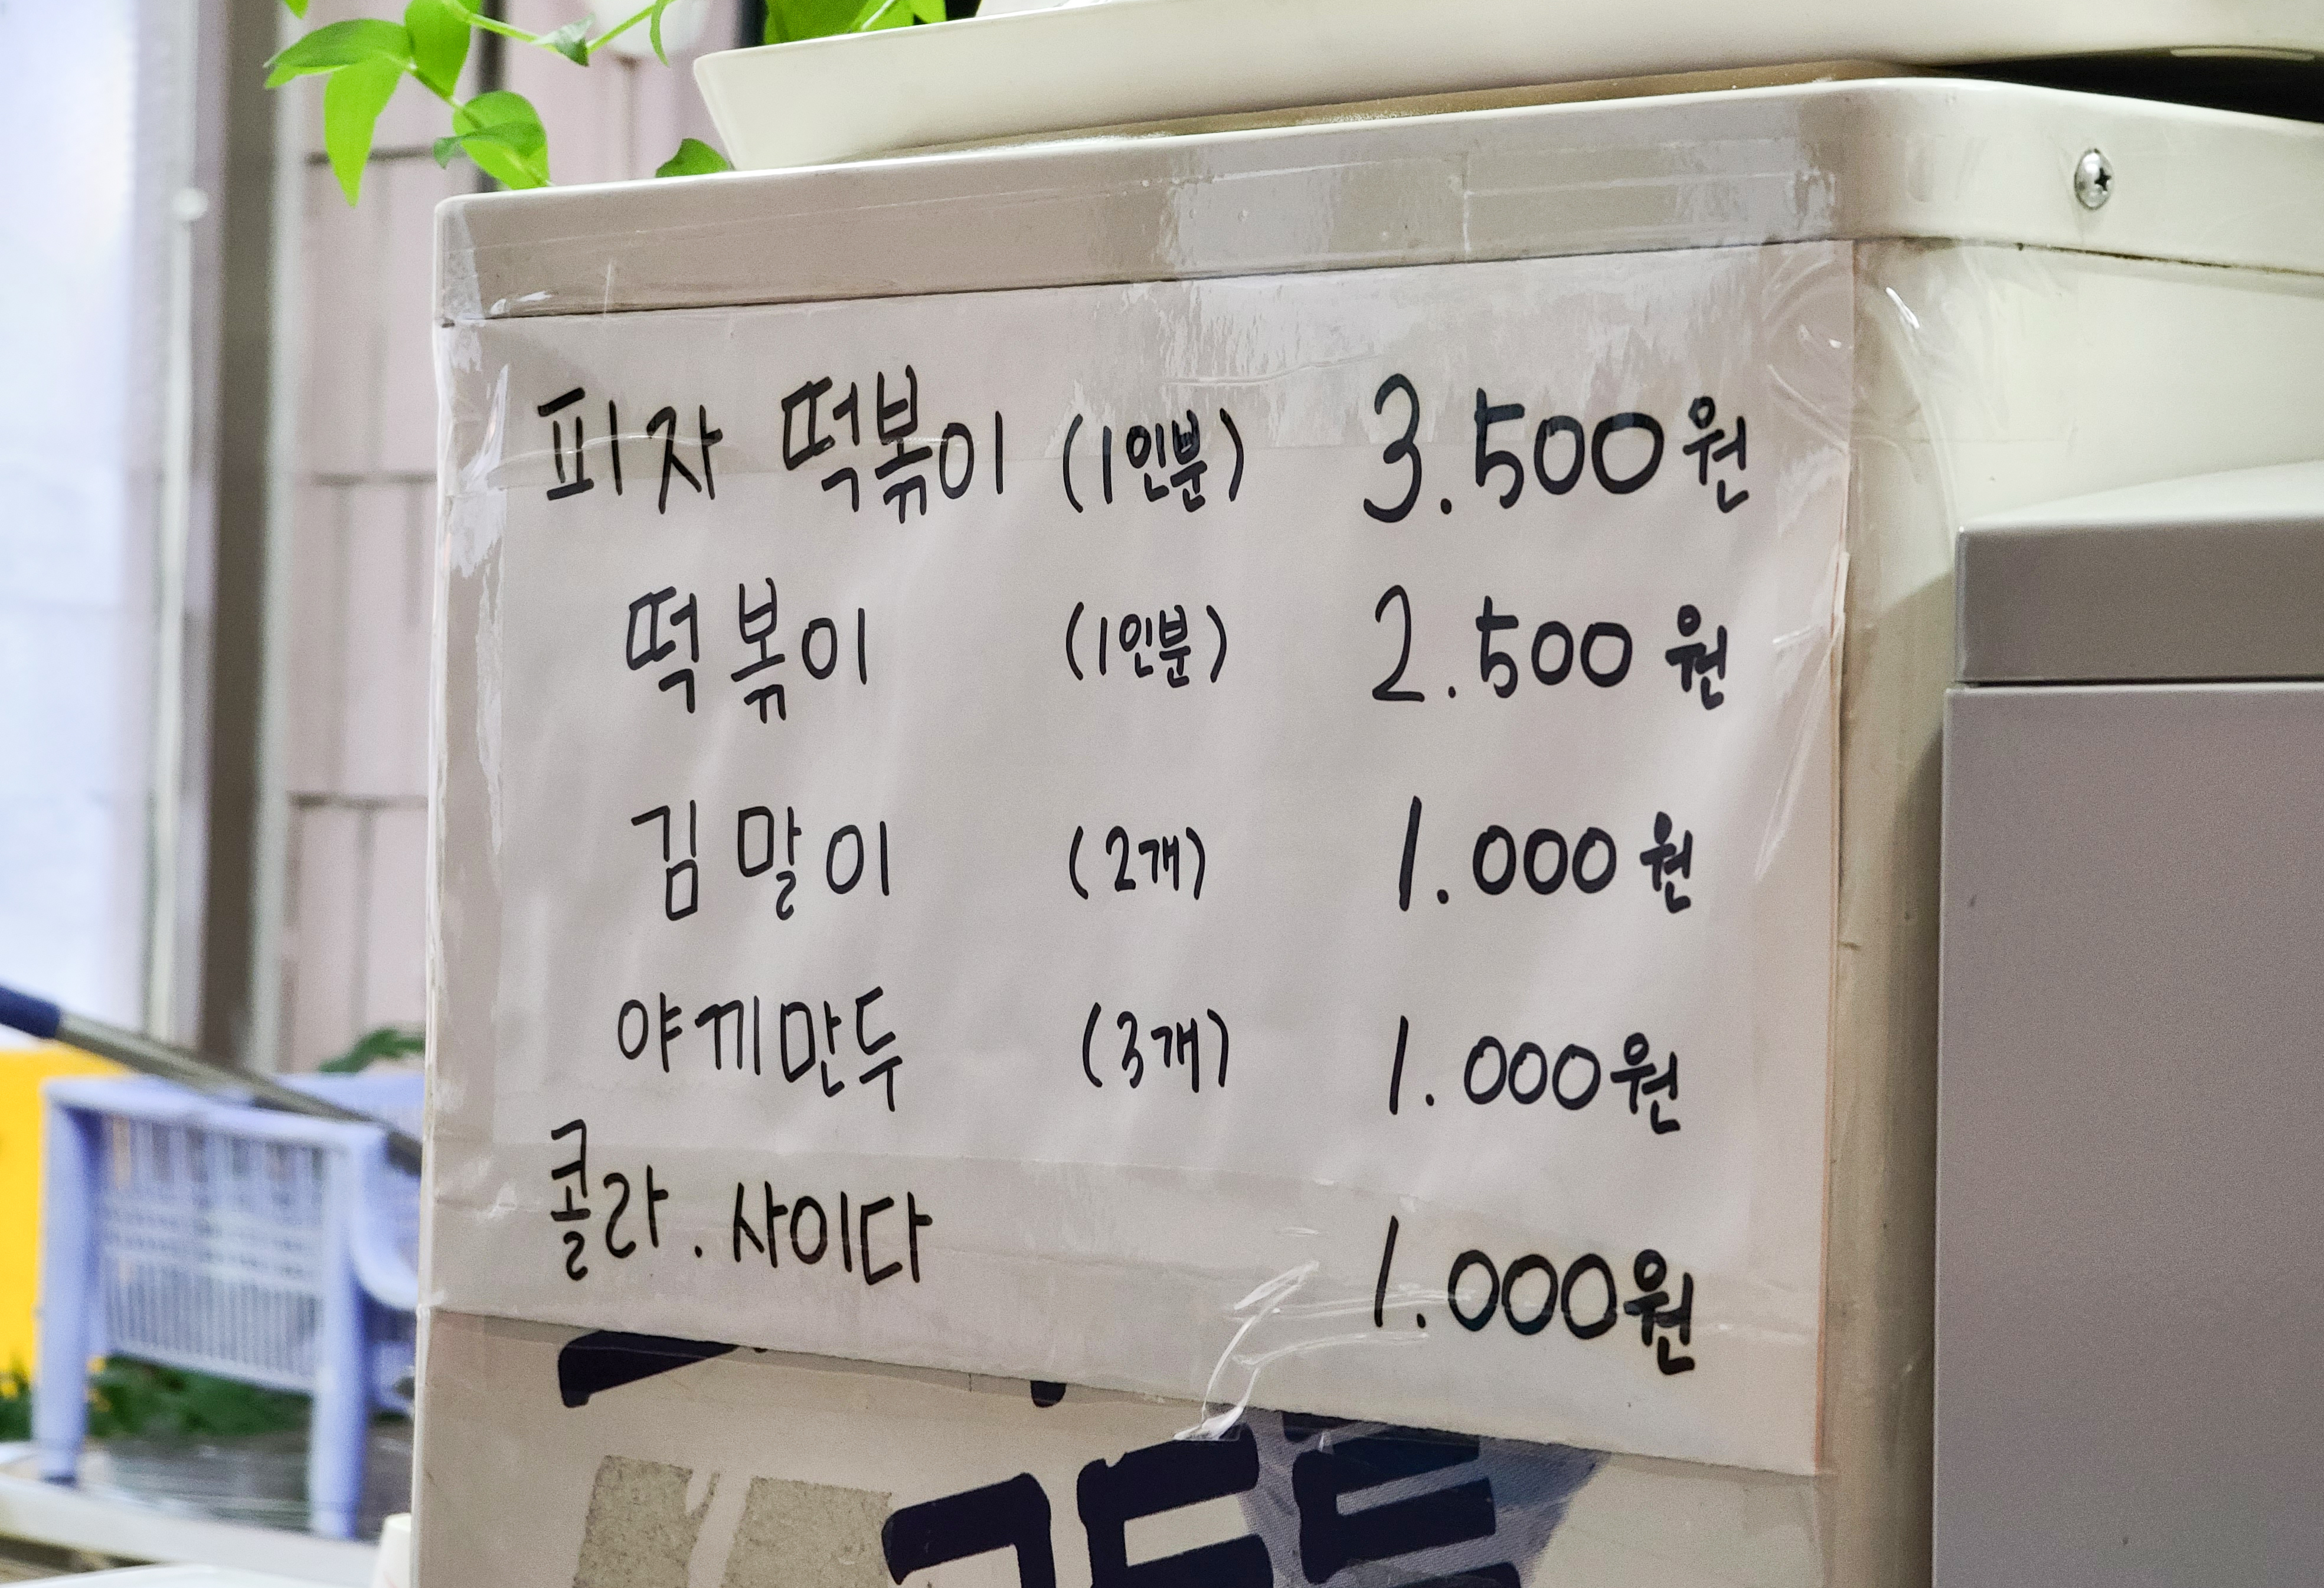 피자 떡볶이 (1인분) 3.500원
떡볶이 (1인분) 2.500원
김말이 (2개) 1.000원
야끼만두 (3개) 1.000원
콜라. 사이다 1.000원